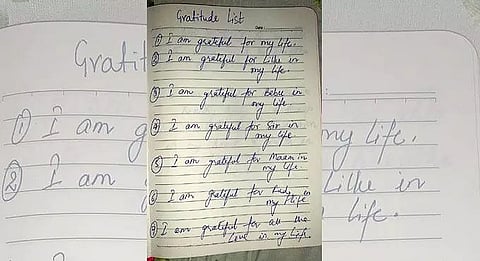 Gratitude List
Date:
① I am grateful for my life.
② I am grateful for Lilke in
my life.
③ I am grateful for Bebu in
my life
④ I am grateful for Sir in
my life.
⑤ I am grateful for Maam in
my life
⑥ I am grateful for in
my life
⑦ I am grateful for all the
Love in my life.